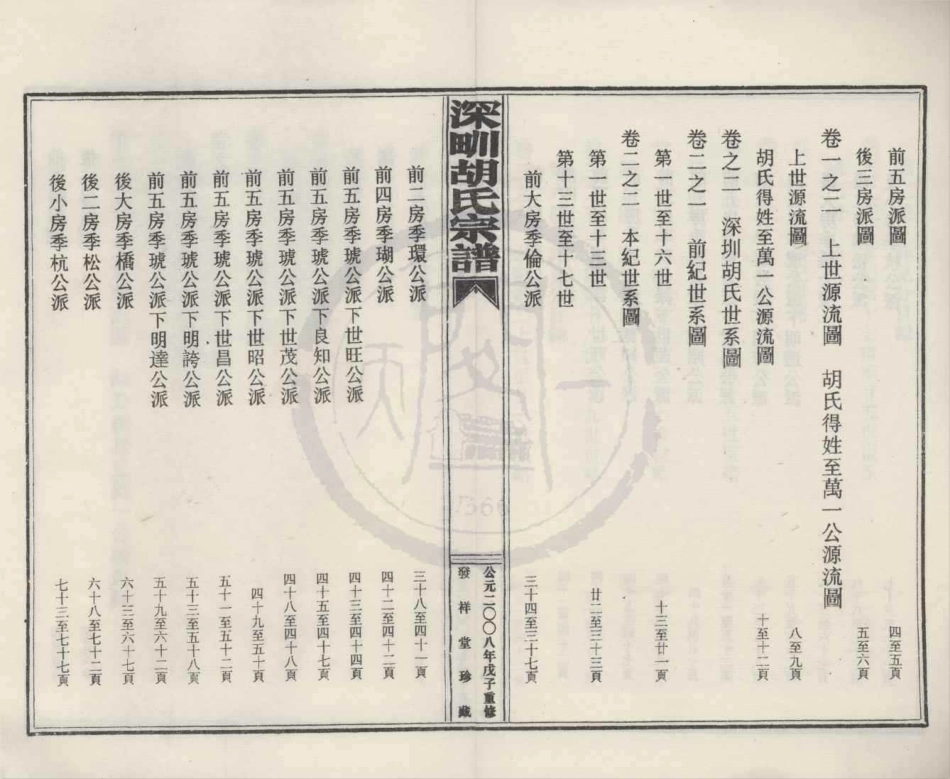 前五房派圖 四至五頁
後三房派圖 五至六頁
卷一之二 上世源流圖 胡氏得姓至萬一公源流圖
上世源流圖 八至九頁
胡氏得姓至萬一公源流圖 十至十二頁
卷之二 深圳胡氏世系圖
卷二之一 前紀世系圖
第一世至十六世 十三至廿一頁
卷二之二 本紀世系圖
第一世至十三世 廿二至三十三頁
第十三世至十七世
前大房季倫公派 三十四至三十七頁
深甽胡氏宗譜
公元二〇〇八年戊子重修
發祥堂珍藏
前二房季環公派 三十八至四十一頁
前四房季瑚公派 四十二至四十二頁
前五房季琥公派下世旺公派 四十三至四十四頁
前五房季琥公派下良知公派 四十五至四十七頁
前五房季琥公派下世茂公派 四十八至四十八頁
前五房季琥公派下世昭公派 四十九至五十頁
前五房季琥公派下世昌公派 五十一至五十二頁
前五房季琥公派下明誇公派 五十三至五十八頁
前五房季琥公派下明達公派 五十九至六十二頁
後大房季橋公派 六十三至六十七頁
後二房季松公派 六十八至七十二頁
後小房季杭公派 七十三至七十七頁
1366